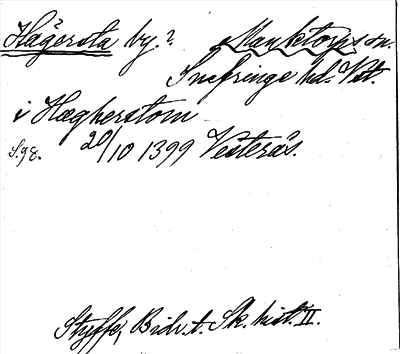 Hågersta by.? Munktorps sn.
Snefringe hd. Vst.
i Hægherstom
S. 98. 20/10 1399 Vesterås.
Styffe, Bidr. t. Sk. hist. II.